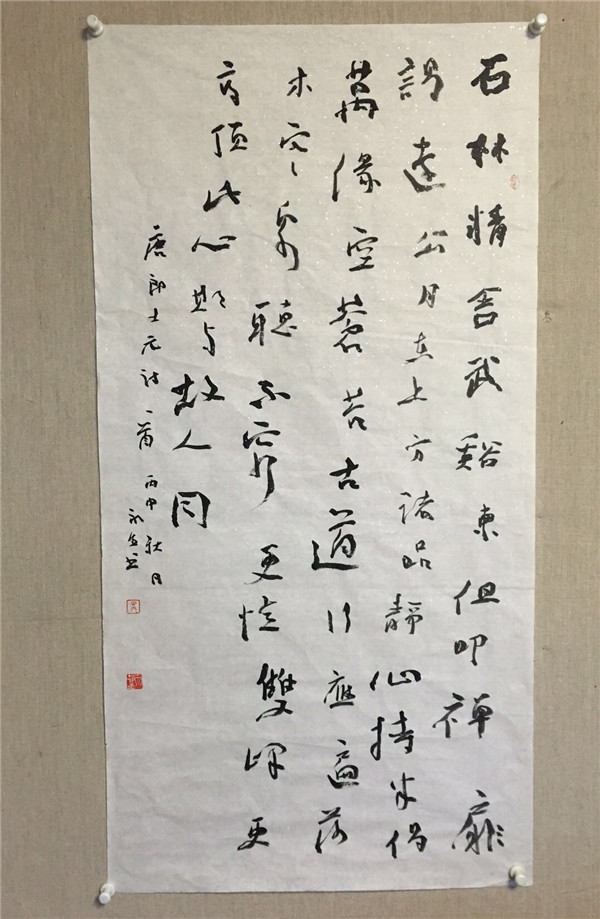 石林精舍武谿東但叩禅扉
謁遠公月在上方諸品靜心持半偈
萬緣空蒼苔古道行應遍落
木寒泉聽不窮更憶雙峰更
高頂此心期与故人同
唐郎士元诗一首 丙申秋月